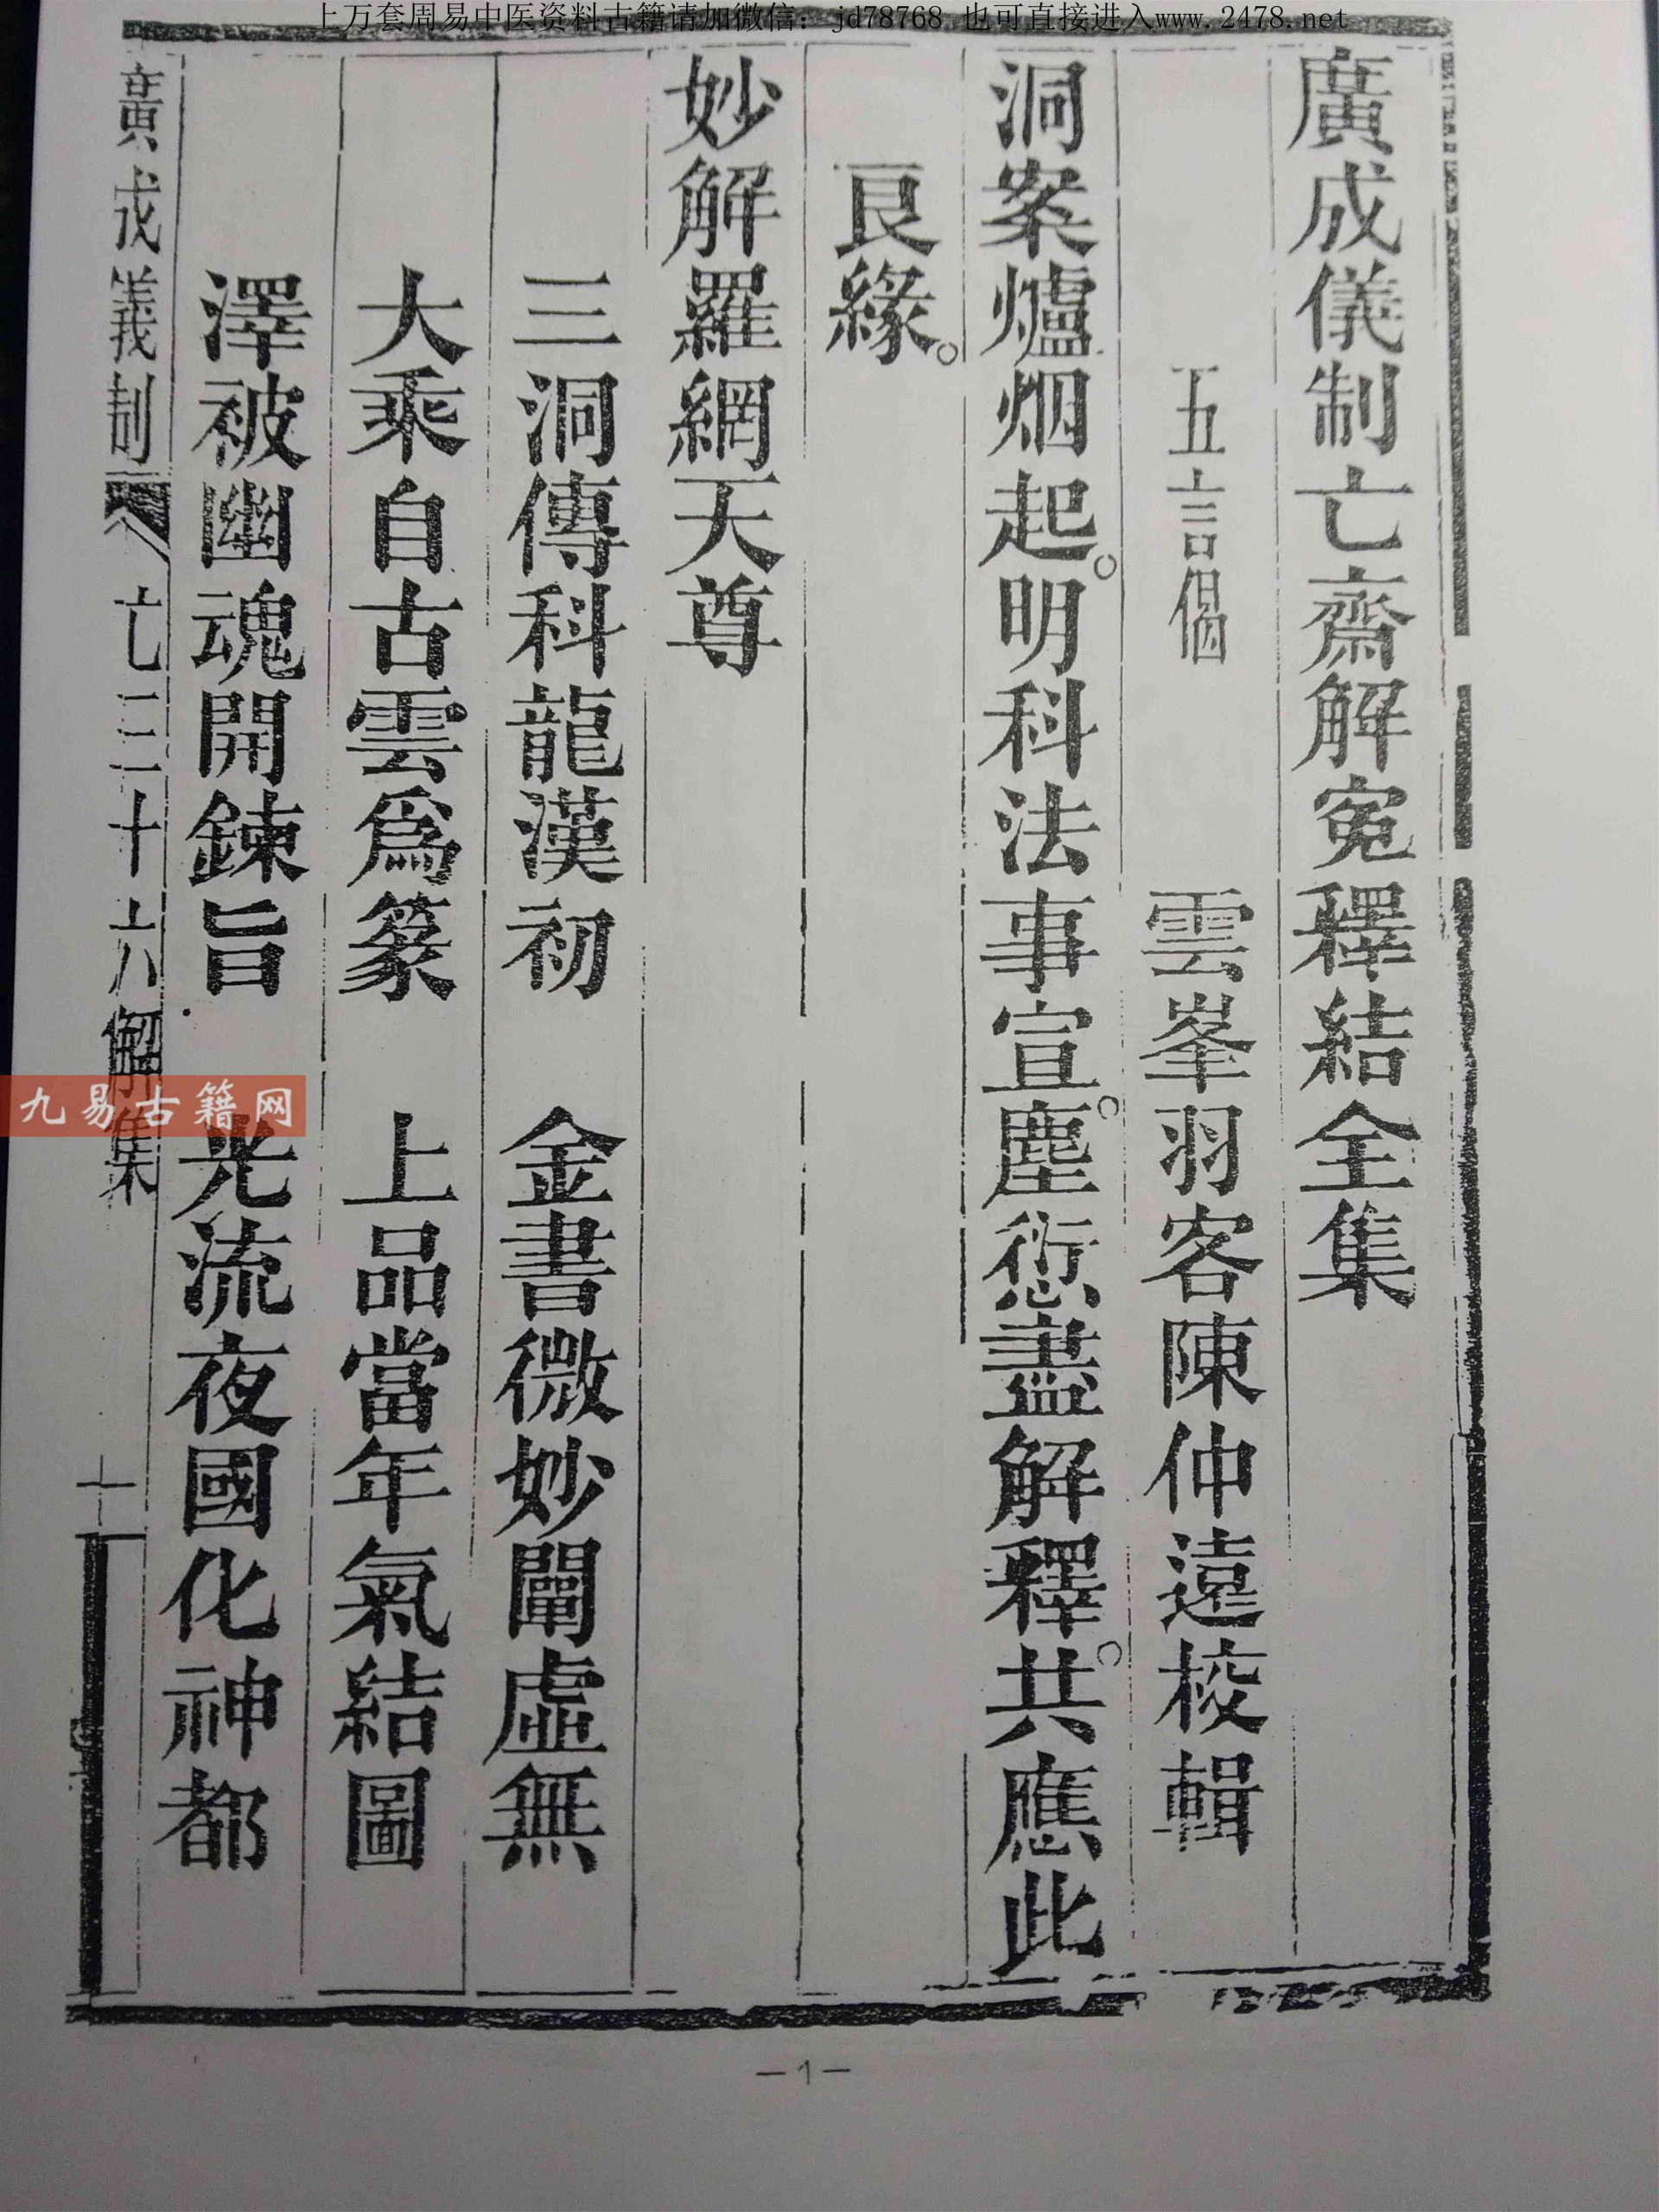 上万套周易中医资料古籍请加微信：jd78768 也可直接进入www.2478.net
廣成儀制亡齋解寃釋結全集
五言偈 雲峯羽客陳仲遠校輯
洞案爐烟起。明科法事宣。塵愆盡解釋。共應此
良緣。
妙解羅網天尊
三洞傳科龍漢初 金書微妙闡虛無
大乘自古雲爲篆 上品當年氣結圖
澤被幽魂開鍊旨 光流夜國化神都
廣成儀制 亡三十六解集 十
九易古籍网
—1—